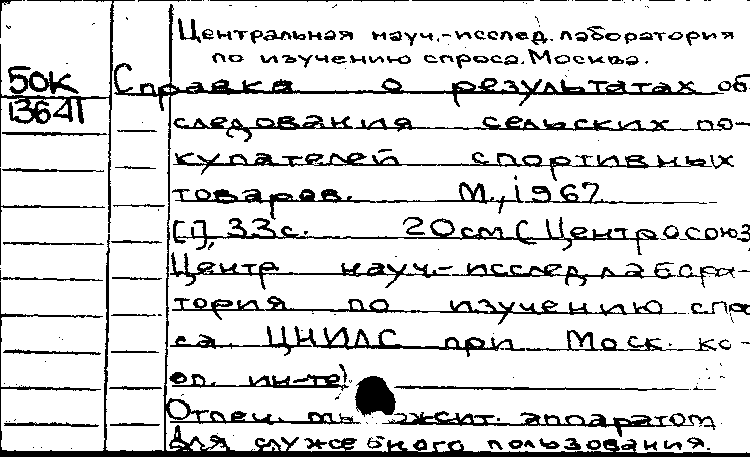 Центральная науч.-исслед. лаборатория
по изучению спроса. Москва.
50К Справка о результатах об-
13641 следования сельских по-
купателей спортивных
товаров. М., 1967
[1], 33с. 20см (Центросоюз
Центр науч.-исслед, лабора-
тория по изучению спро
са. ЦНИЛС при Моск. ко-
оп. ин-те)
Отпеч. аппаратом
Для служебного пользования.